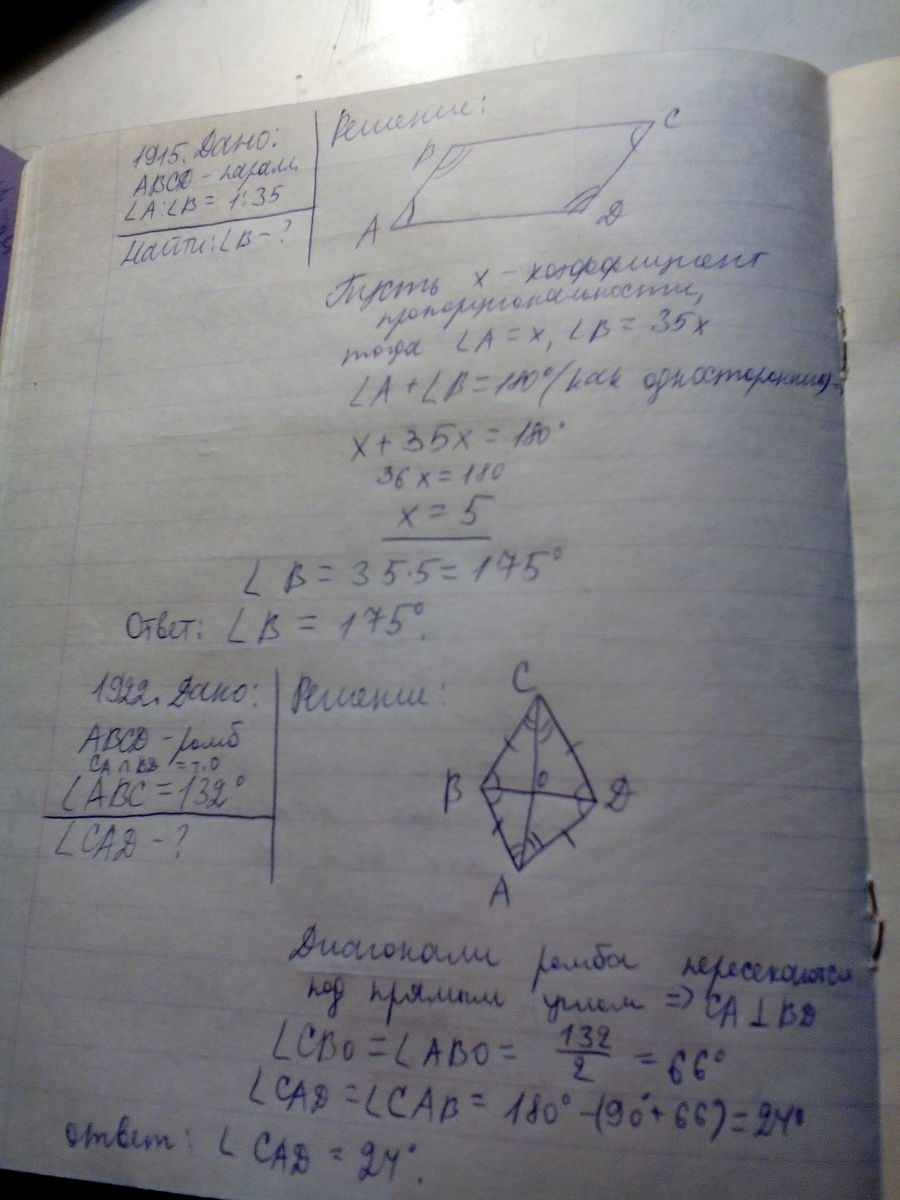 1915. Дано:
ABCD - паралл.
∠A:∠B = 1:35
Найти: ∠B - ?
Решение:
B
C
A
D
Пусть x - коэффициент
пропорциональности,
тогда ∠A = x, ∠B = 35x
∠A + ∠B = 180° (как односторонние) ⇒
x + 35x = 180°
36x = 180
x = 5
∠B = 35·5 = 175°
Ответ: ∠B = 175°.
1922. Дано:
ABCD - ромб
CA ∩ BD = т.O
∠ABC = 132°
∠CAD - ?
Решение:
C
B
O
D
A
Диагонали ромба пересекаются
под прямым углом ⇒ CA ⊥ BD
∠CBO = ∠ABO = 132/2 = 66°
∠CAD = ∠CAB = 180° - (90° + 66) = 24°
ответ: ∠CAD = 24°.